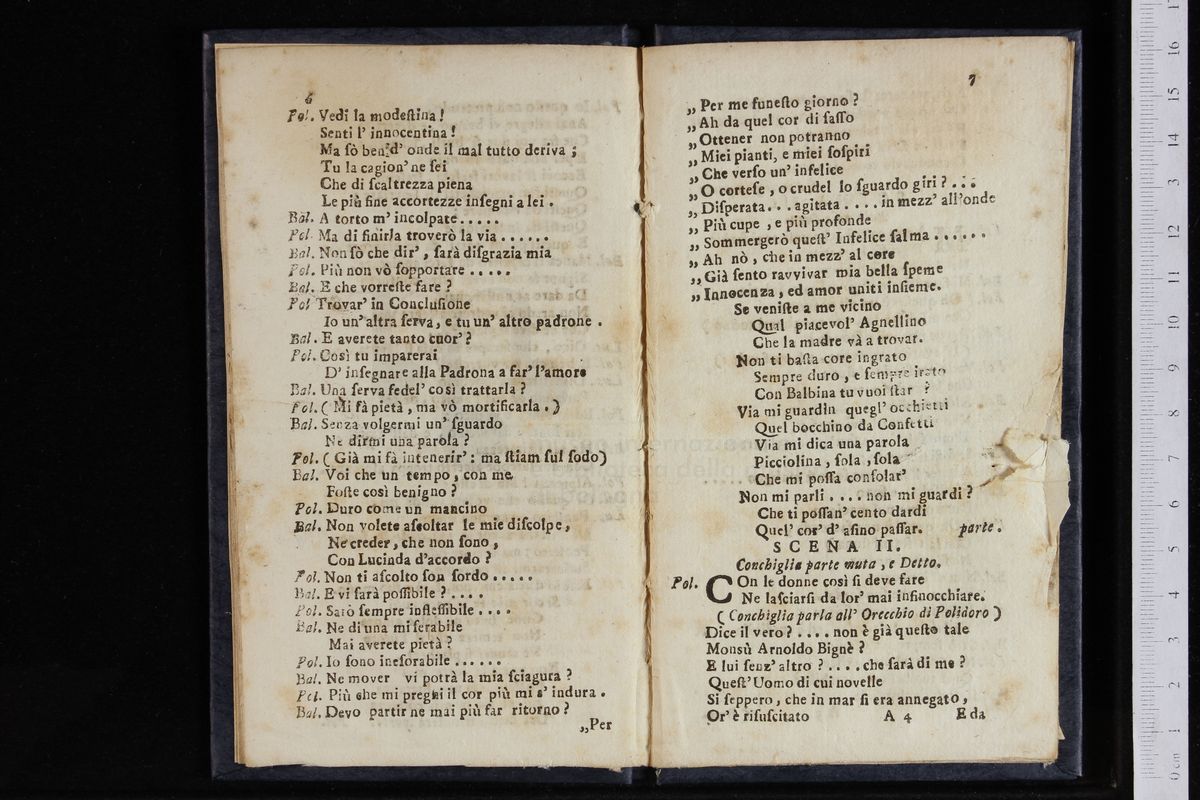 6
Pol. Vedi la modeſtina!
Senti l' innocentina!
Ma ſò ben d' onde il mal tutto deriva;
Tu la cagion' ne ſei
Che di ſcaltrezza piena
Le più fine accortezze inſegni a lei.
Bal. A torto m' incolpate.....
Pol. Ma di finirla troverò la via......
Bal. Non ſò che dir', ſarà diſgrazia mia
Pol. Più non vò ſopportare.....
Bal. E che vorreſte fare?
Pol Trovar' in Concluſione
Io un' altra ſerva, e tu un' altro padrone.
Bal. E averete tanto cuor'?
Pol. Così tu imparerai
D' inſegnare alla Padrona a far' l'amore
Bal. Una ſerva fedel' così trattarla?
Pol. (Mi fà pietà, ma vò mortificarla.)
Bal. Senza volgermi un' ſguardo
Ne dirmi una parola?
Pol. (Già mi fà intenerir': ma ſtiam ſul ſodo)
Bal. Voi che un tempo, con me
Foſte così benigno?
Pol. Duro come un mancino
Bal. Non volete aſcoltar le mie diſcolpe,
Ne creder, che non ſono,
Con Lucinda d'accordo?
Pol. Non ti aſcolto ſon ſordo.....
Bal. E vi ſarà poſſibile?....
Pol. Sarò ſempre infleſſibile....
Bal. Ne di una miſerabile
Mai averete pietà?
Pol. Io ſono ineſorabile......
Bal. Ne mover vi potrà la mia ſciagura?
Pol. Più che mi preghi il cor più mi s' indura.
Bal. Devo partirne mai più far ritorno?
„Per
7
„ Per me funeſto giorno?
„ Ah da quel cor di ſaſſo
„ Ottener non potranno
„ Miei pianti, e miei ſoſpiri
„ Che verſo un' infelice
„ O corteſe, o crudel lo ſguardo giri?...
„ Diſperata... agitata.... in mezz' all'onde
„ Più cupe, e più profonde
„ Sommergerò queſt' Infelice ſalma......
„ Ah nò, che in mezz' al core
„ Già ſento ravvivar mia bella ſpeme
„ Innocenza, ed amor uniti inſieme.
Se veniſte a me vicino
Qual piacevol' Agnellino
Che la madre và a trovar.
Non ti baſta core ingrato
Sempre duro, e ſempre irato
Con Balbina tu vuoi ſtar?
Via mi guardin quegl' occhietti
Quel bocchino da Confetti
Via mi dica una parola
Picciolina, ſola, ſola
Che mi poſſa conſolar'
Non mi parli.... non mi guardi?
Che ti poſſan' cento dardi
Quel' cor' d' aſino paſſar. parte.
SCENA II.
Conchiglia parte muta, e Detto.
Pol. COn le donne così ſi deve fare
Ne laſciarſi da lor' mai infinocchiare.
(Conchiglia parla all' Orecchio di Polidoro)
Dice il vero?.... non è già queſto tale
Monsù Arnoldo Bignè?
E lui ſenz' altro?.... che ſarà di me?
Queſt' Uomo di cui novelle
Si ſeppero, che in mar ſi era annegato,
Or' è riſuſcitato A 4 E da